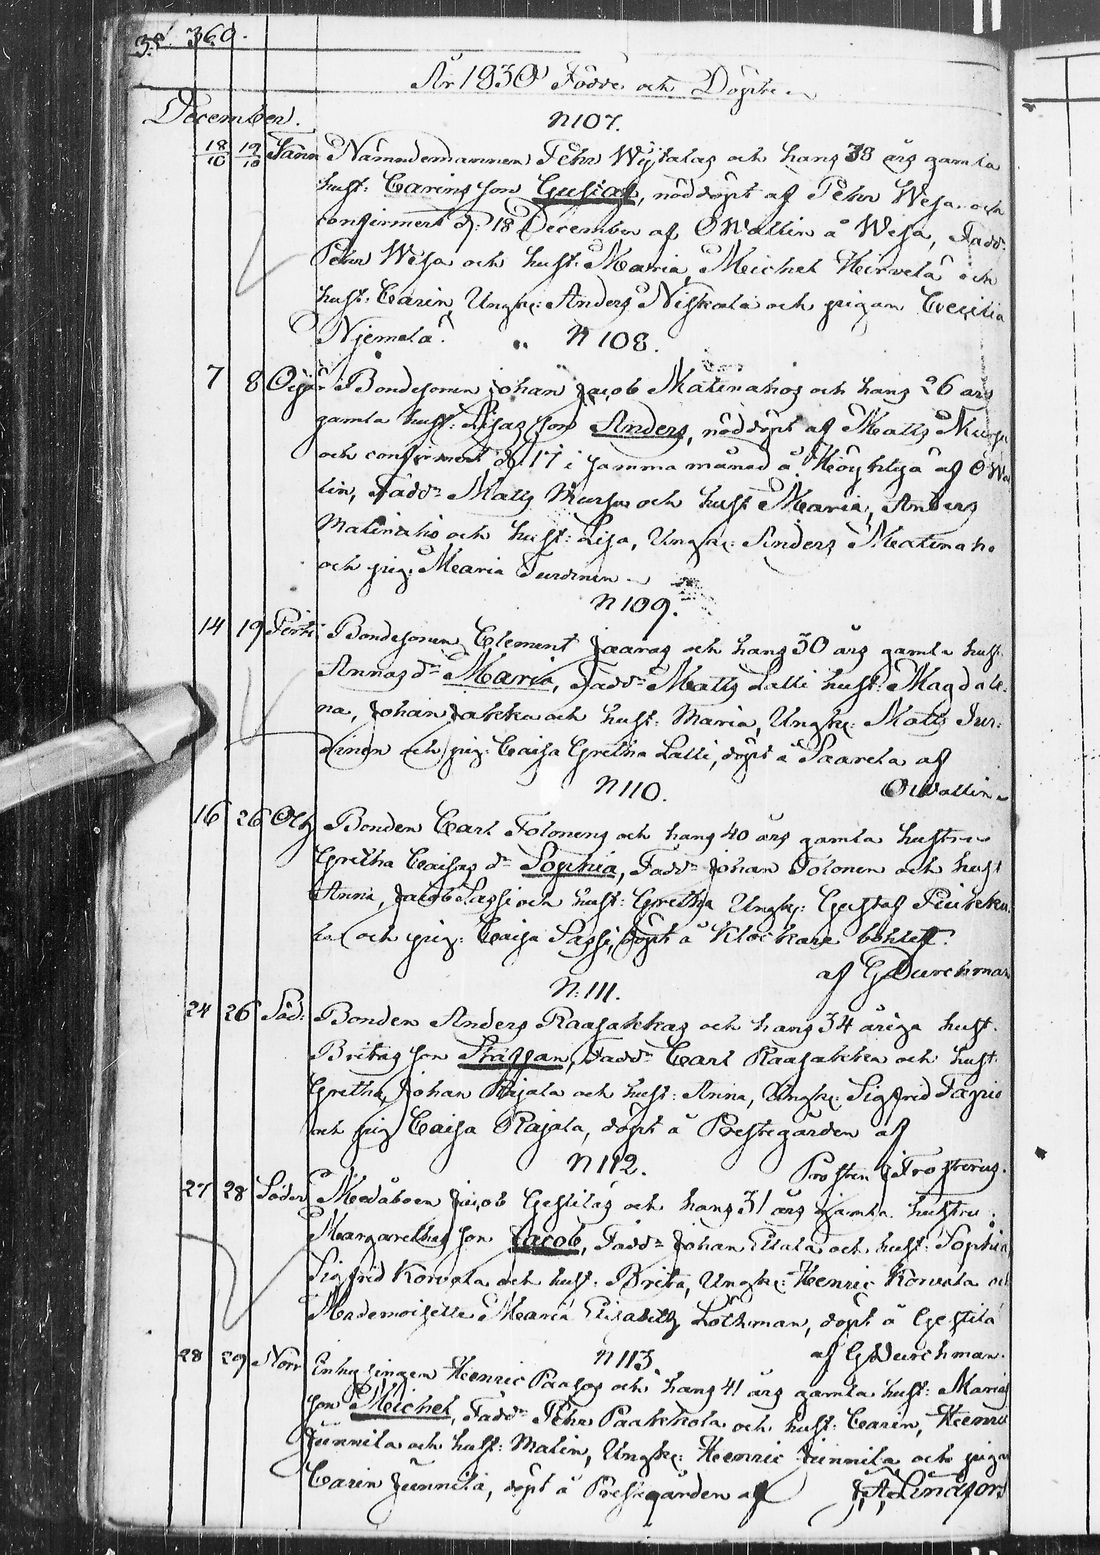 360.
År 1830 Födde och Döpte
December.
N 107.
18/10 19/10 Nämndemannen Pehr Wijtalas och hans 38 års gamla
hust: Carins son Gustaf, nöddöpt af Pehr Wesa och
confirmert d: 18 December af O Wallin å Wesa, Fadd:
Pehr Wesa och hust: Maria, Michel Hirvelä och
hust: Carin, Ungk: Anders Niskala och pigan Cecilia
Njemelä.
N 108.
7 8 Bondesonen Johan Jacob Matinahos och hans 26 års
gamla hust: Lisas son Anders, nöddöpt af Matts Mursu
och confirmert d: 17 i samma månad å Höyhtyä af O Wal
lin, Fadd: Matts Mursu och hust Maria, Anders
Matinaho och hust: Lisa, Ungk: Anders Matinaho
och pig: Maria Turunen
N 109.
14 19 Bondesonen Clement Jaaras och hans 30 års gamla hust.
Annas dr Maria, Fadd: Matts Latti hust: Magdale
na, Johan Jakku och hust: Maria, Ungk: Matts Tur
unen och pig: Caisa Gretha Latti, döpt å Saarela af
O Wallin
N 110.
16 26 Bonden Carl Tolonens och hans 40 års gamla hustru
Gretha Caisas dr Sophia, Fadd: Johan Tolonen och hust
Anna, Jacob Sassi och hust: Gretha Ungk: Gustaf
och pig: Caisa Sassi, döpt å Klockare bohlet.
af G Durchman
N: 111.
24 26 Söd: Bonden Anders Raasakkas och hans 34 åriga hust.
Britas son Staffan, Fadd: Carl Raasakka och hust
Gretha, Johan Rajala och hust: Anna, Ungk: Sigfrid
och pig Caisa Rajala, döpt å Prestegården af
Prosten J Frosterus.
N 112.
27 28 Mådåboen Jacob Gestiläs och hans 31 års gamla hustru
Margarethas son Jacob, Fadd: Johan Ellala och hust: Sophia
Sigfrid Korvola och hust: Brita, Ungk: Henric Korvola och
Mademoiselle Maria Elisabeth Lothman, döpt å Gestilä
af G Durchman.
N 113.
28 29 Norr Enhysingen Henric Paasos och hans 41 års gamla hust: Marias
son Michel, Fadd: Pehr Paakkola och hust: Carin, Henric
Junnila och hust: Malin, Ungk: Henric Junnila och pigan
Carin Junnila, döpt å Prestegården af J A Lindfors